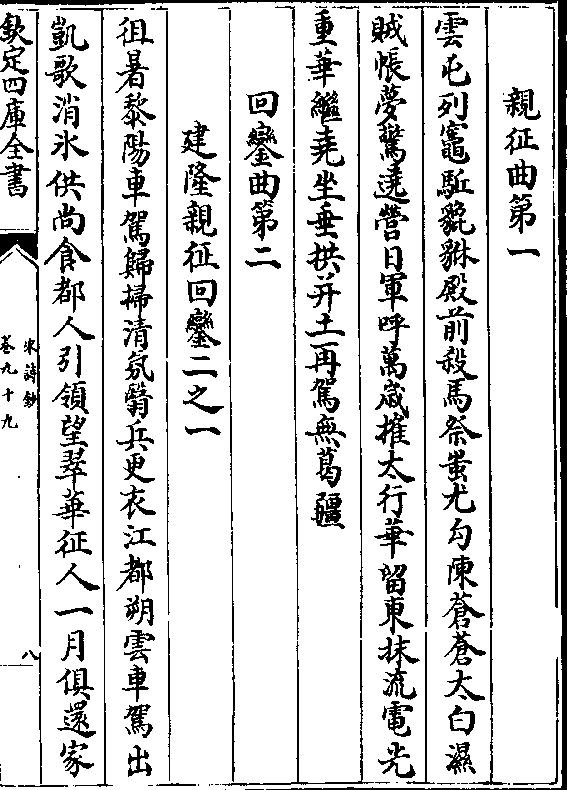 親征曲第一
雲屯列竈駈貔貅殿前殺馬祭蚩尤勾陳蒼蒼太白濕
賊帳夢驚遶營日軍呼萬歳摧太行華留東抹流電光
重華繼堯坐垂拱并土再駕無葛疆
回鑾曲第二
建隆親征回鑾二之一
徂暑黎陽車駕歸掃清氛翳兵更衣江都朔雲車駕出
凱歌消氷供尚食都人引領望翠華征人一月俱還家
欽定四庫全書
宋詩鈔
卷九十九
八